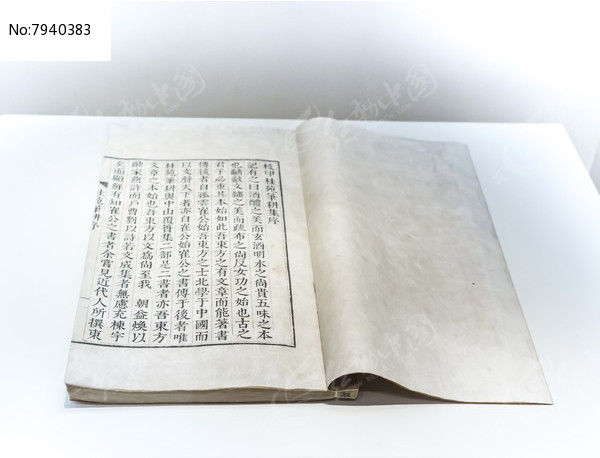 No:7940383
校印桂苑筆耕集序
記有之曰酒醴之美而玄酒明水之尚貴五味之本
也黼黻文繡之美而疏布之尚反女功之始也古之
君子必重其本始如此吾東方之有文章而能著書
傳後者自孤雲崔公始吾東方之士北學于中國而
以文聲天下者亦自崔公始崔公之書傳于後者唯
桂苑筆耕與中山覆簣集二部是二書者亦吾東方
文章之本始也吾東方以文爲尚至我 朝益煥以
融家燕許而戶曹劉以詩若文成集者無慮充棟宇
矣而顧鮮有知崔公之書者余嘗見近代人所撰東
桂苑筆耕序